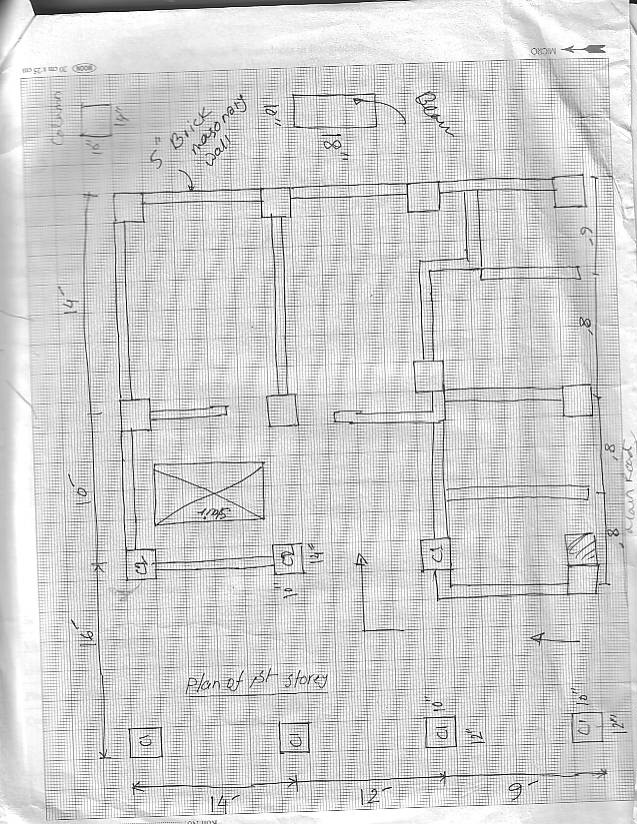 MICRO
MOON 20 cm x 25 cm
Column
10"
14"
5" Brick
masonary
wall
10"
18"
Beam
14'
10'
16'
6'
8'
8'
8'
Main Road
Stair
C2
C2
14"
10"
C1
Plan of 1st Storey
C1
C1
C1
10"
12"
C1
10"
12"
14'
12'
9'